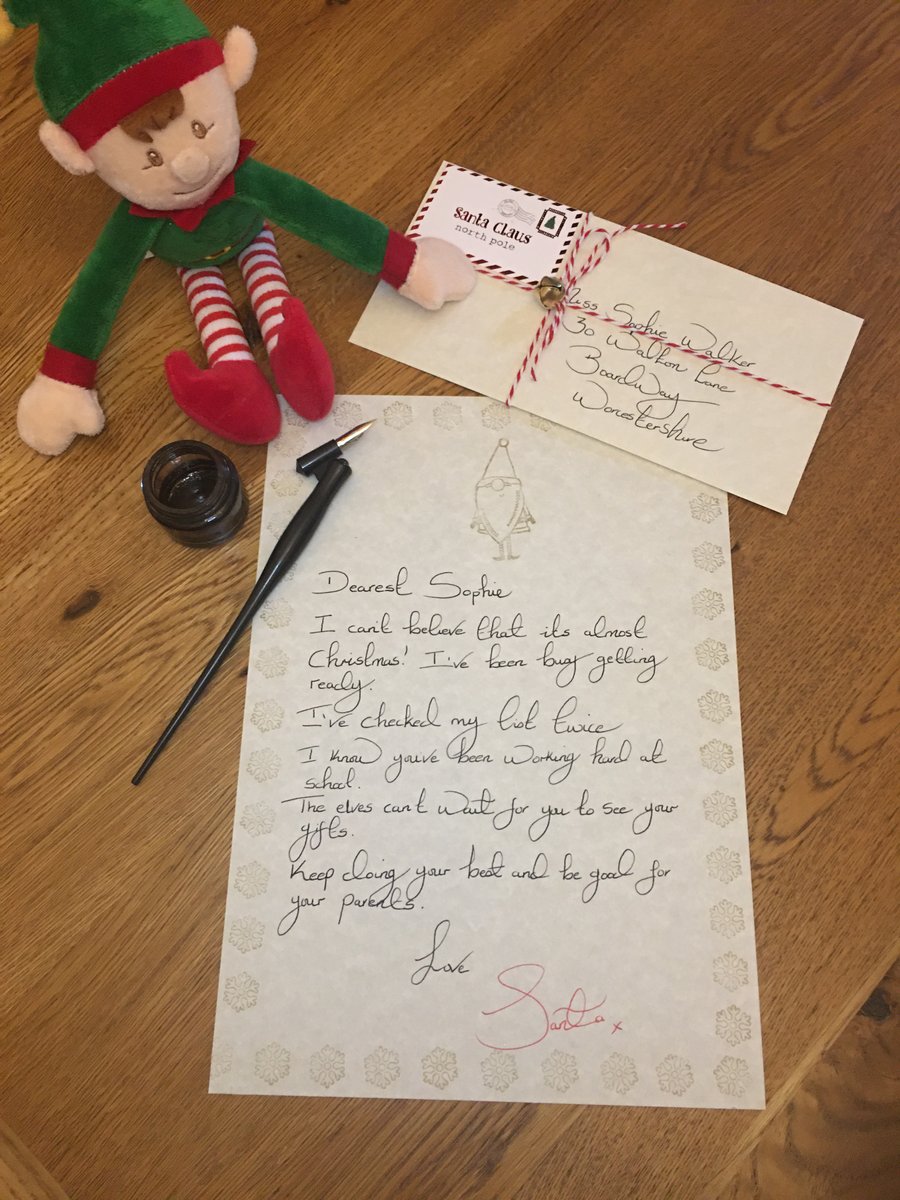 Santa Claus
north pole
Miss Sophie Walker
30 Walkon Lane
BoardWay
Worcestershire
Dearest Sophie
I can't believe that its almost
Christmas! I've been busy getting
ready.
I've checked my list twice
I know you've been working hard at
school.
The elves can't wait for you to see your
gifts.
Keep doing your best and be good for
your parents.
Love
Santa x